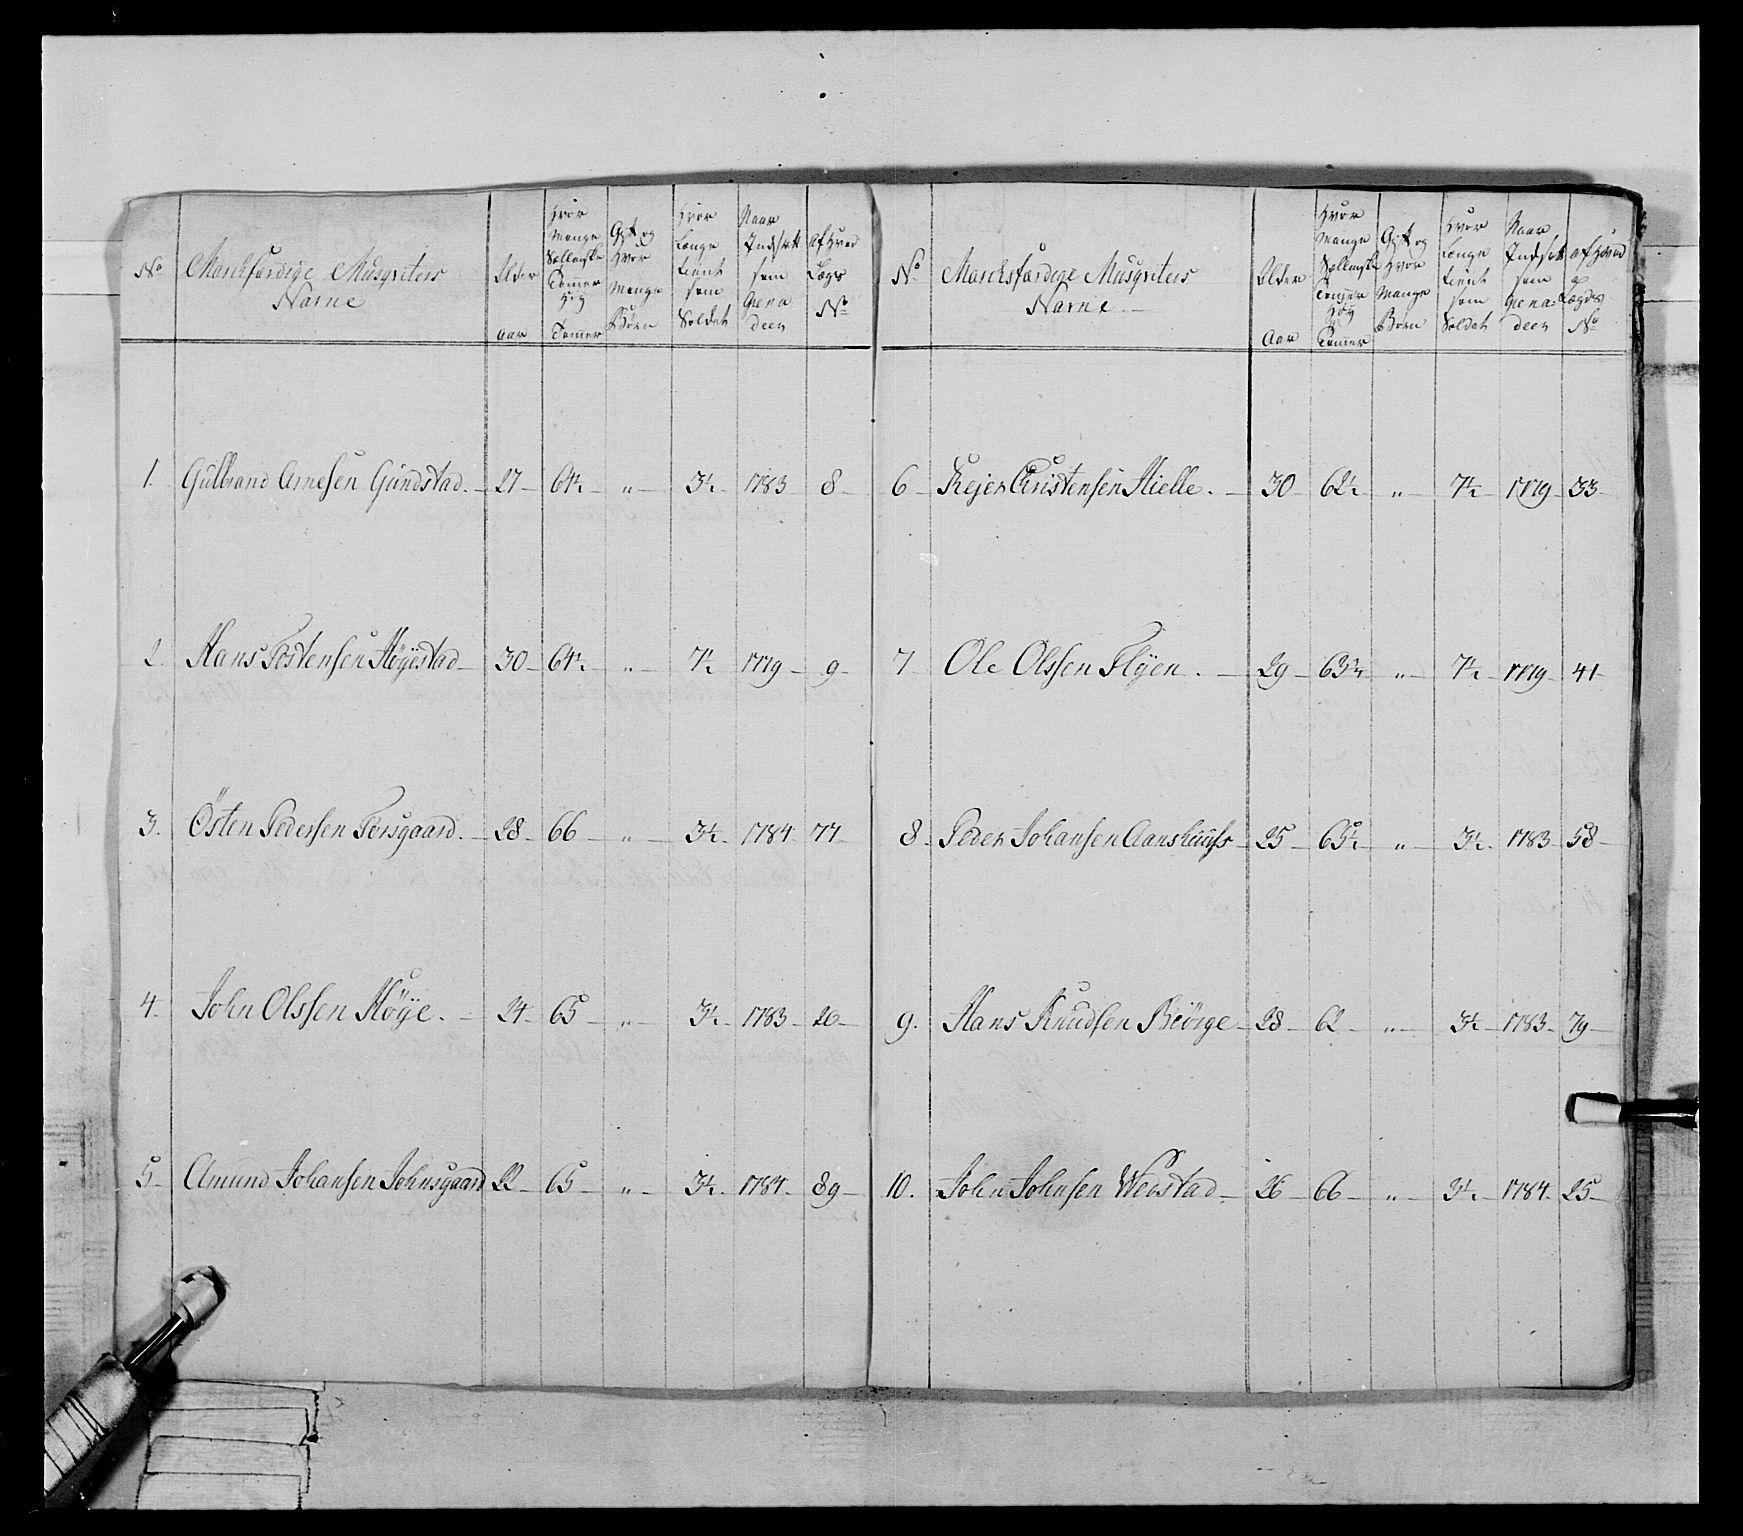 No
Marchfærdige Musqviters
Navne
Alder
Aar
Hvor
Mange
Tomer
Høy
Tommer
Gift og
Hvor
Mange
Børn
Hvor
Længe
tient
som
Soldat
Naar
Indsatt
som
Gena
deer
Af Hvad
Lægs
No
1. Gulbrand Arnesen Gundstad. 27 64½ " 3½ 1783 8
2. Hans Tostensen Høyestad 30 64½ " 7½ 1779 9
3. Østen Pedersen Forsgaard. 28 66 " 3½ 1784 77
4. John Olssen Høye. 24 65 " 3½ 1783 26
5. Amund Johansen Johnsgaard 22 65 " 3½ 1784 89
No
Marchfærdige Musqviters
Navne
Alder
Aar
Hvor
Mange
Tommer
Høy
Tommer
Gift og
Hvor
Mange
Børn
Hvor
Længe
tient
som
Soldat
Naar
Indsatt
som
Gena
deer
af Hvad
Lægds
No
6 Rejer Christensen Hielle. 30 62½ " 7½ 1779 33
7 Ole Olssen Flyen. 29 63¾ " 7½ 1779 41
8. Peder Johansen Aanshuuss 25 65½ " 3½ 1783 58
9. Hans Knudsen Biörge 28 62 " 3½ 1783 79
10. John Johnsen Weostad 26 66 " 3½ 1784 25